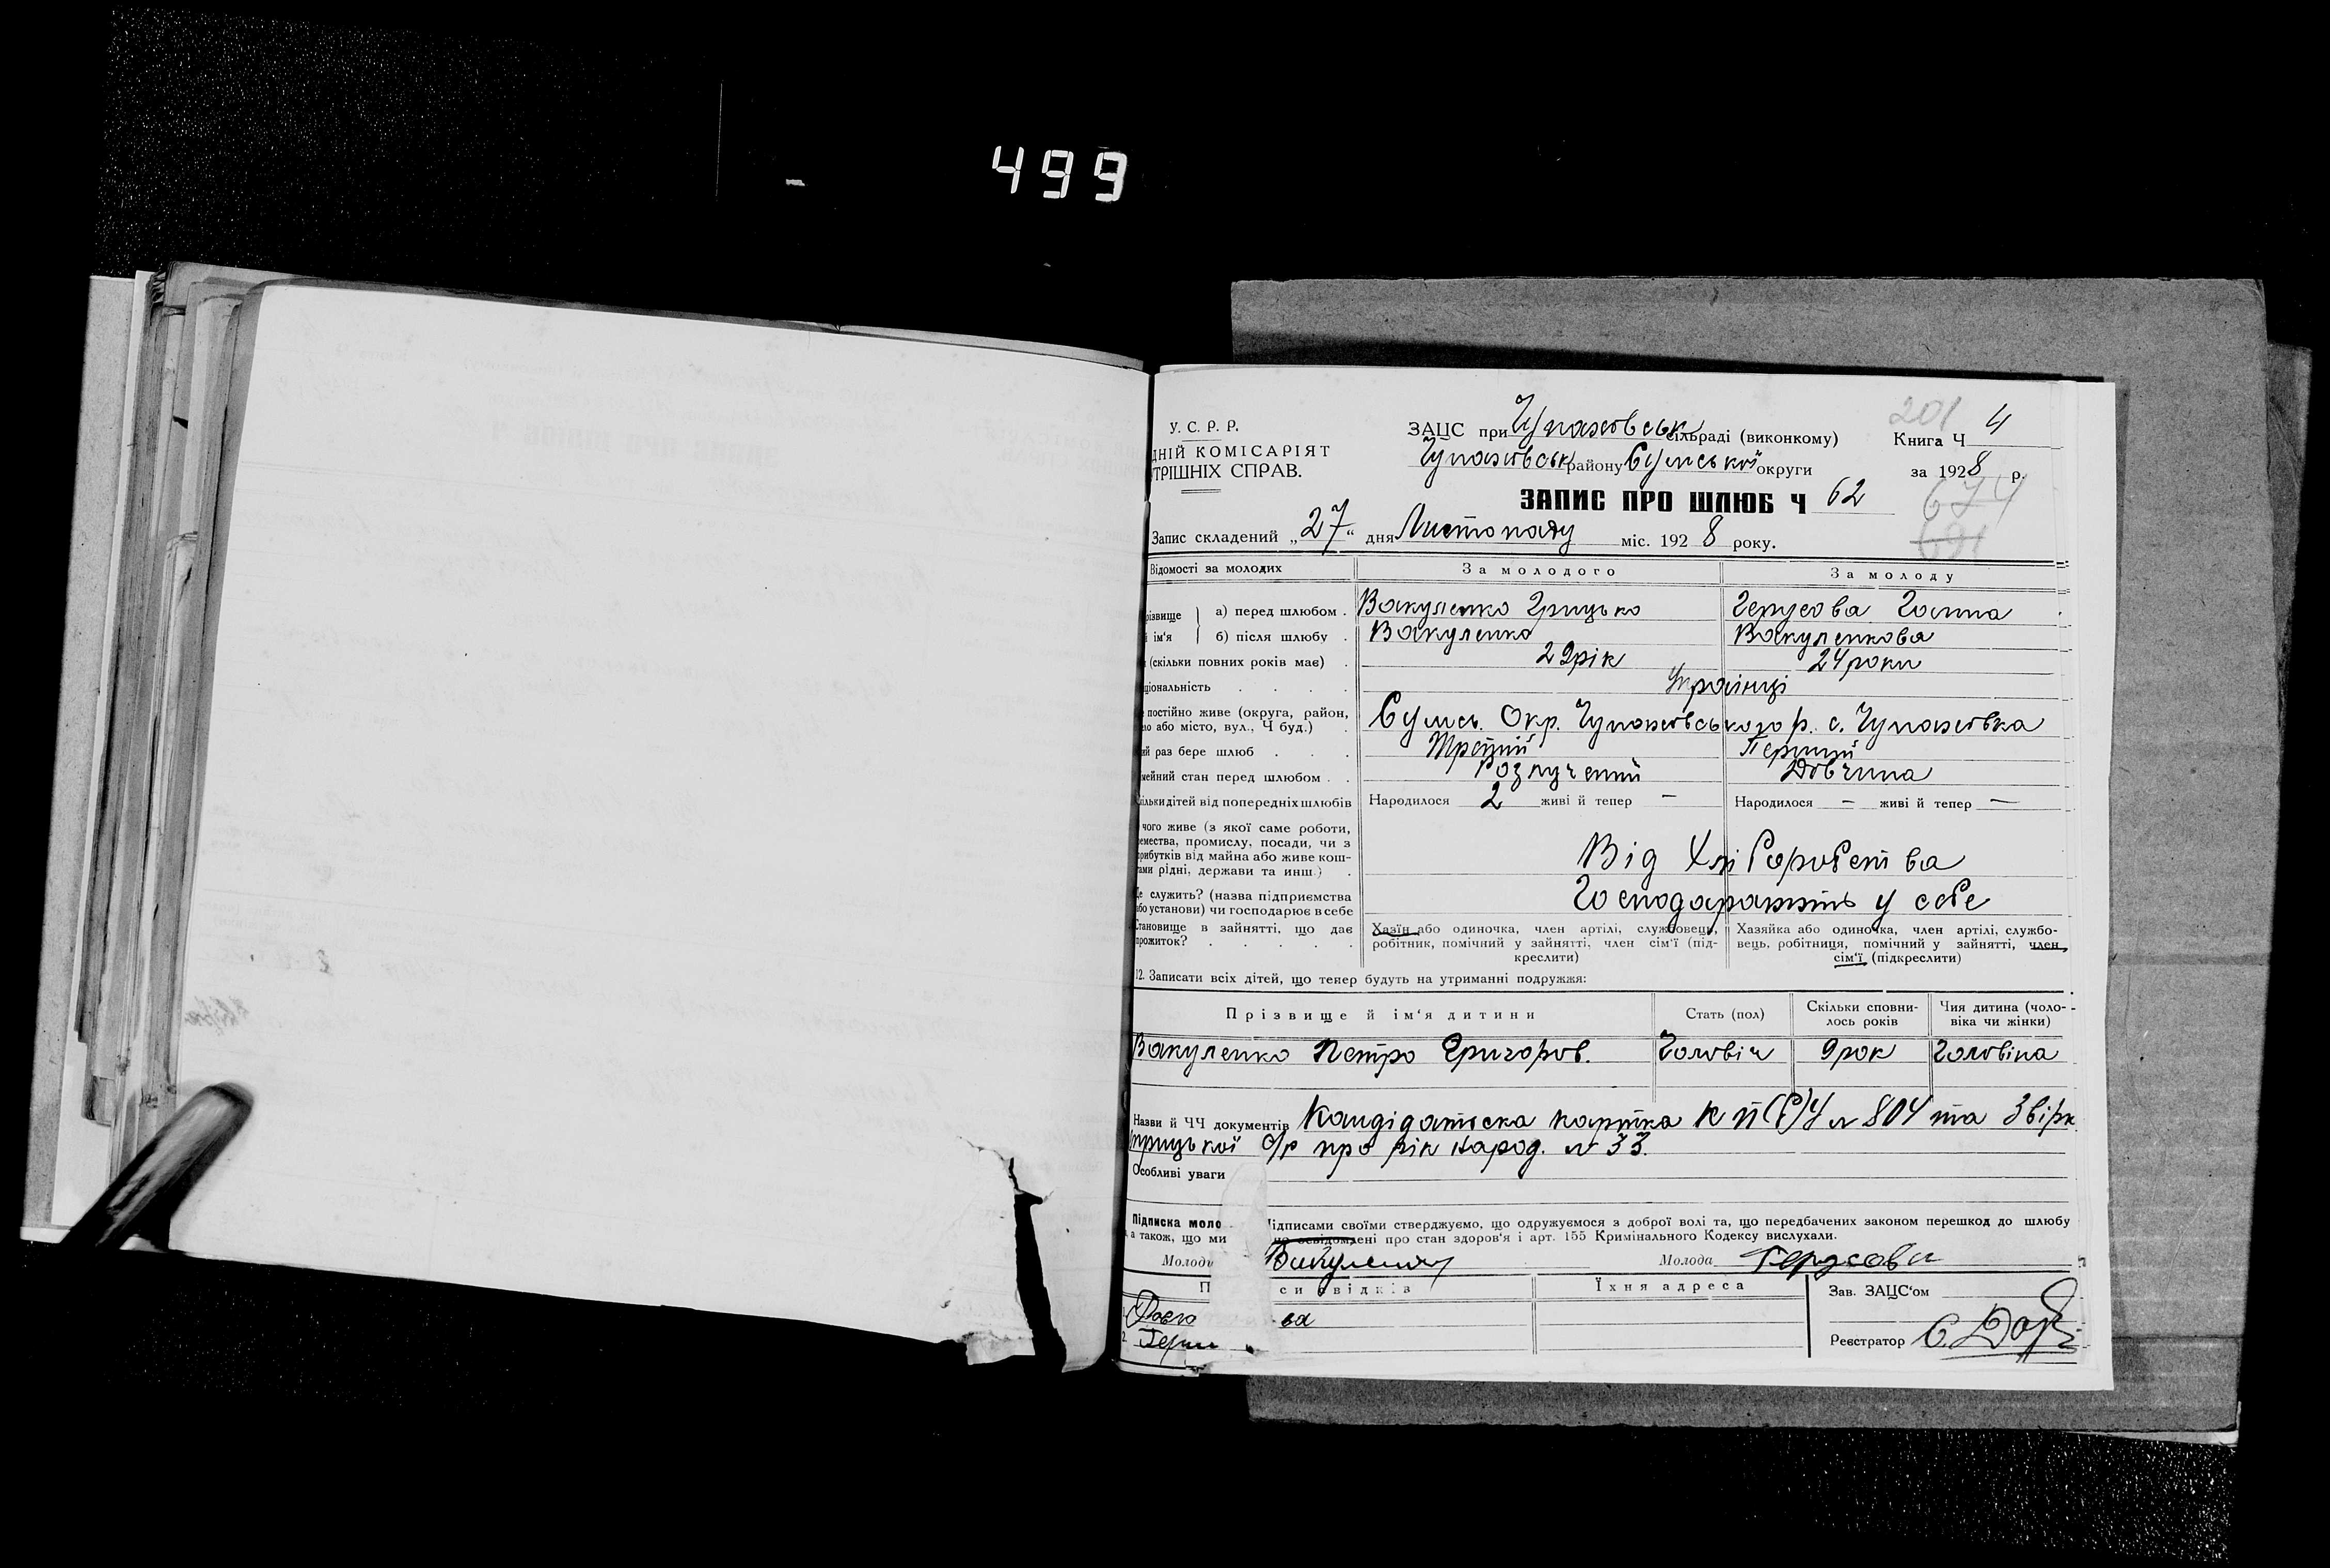 499
У. С. Р. Р.
ДНІЙ КОМІСАРІЯТ
УТРІШНІХ СПРАВ.
ЗАЦС при Чупаховськ сільраді (виконкому)
Чупаховськ району Сумської округи
201
Книга Ч 4
за 1928 р.
ЗАПИС ПРО ШЛЮБ Ч 62
674
691
Запис складений „27“ дня Листопаду міс. 1928 року.
Відомості за молодих
За молодого
За молоду
різвище й ім'я
а) перед шлюбом . Вакуленко Грицько
Герусова Ганна
б) після шлюбу . Вакуленко
Вакуленкова
(скільки повних років має) . 29рік
24роки
ціональність . . . . Українці
постійно живе (округа, район, ло або місто, вул., Ч буд.) . Сумсь. Окр. Чупахівського р. с. Чупахівка
ий раз бере шлюб . . . Третій
Перший
мейний стан перед шлюбом . . Розлучений
Дівчина
кільки дітей від попередніх шлюбів
Народилося 2 живі й тепер —
Народилося — живі й тепер —
чого живе (з якої саме роботи,
емества, промислу, посади, чи з
прибутків від майна або живе кош-
тами рідні, держави та инш.) .
Від Хліборобства
Де служить? (назва підприємства
або установи) чи господарює в себе
Господаражть у себе
Становище в зайнятті, що дає
прожиток? . . . . .
Хазїн або одиночка, член артілі, службовець,
робітник, помічний у зайнятті, член сім'ї (під-
креслити)
Хазяйка або одиночка, член артілі, службо-
вець, робітниця, помічний у зайнятті, член
сім'ї (підкреслити)
12. Записати всіх дітей, що тепер будуть на утриманні подружжя:
Прізвище й ім'я дитини
Стать (пол)
Скільки сповни-
лось років
Чия дитина (чоло-
віка чи жінки)
Вакуленко Петро Григоров.
Чоловіч
9рок
Чоловіка
Назви й ЧЧ документів Кандідатська картка КП(б)У № 804 та Звірк
о/р про рік народ. № 33.
Особливі уваги
Підписка моло
ідписами своїми стверджуємо, що одружуємося з доброї волі та, що передбачених законом перешкод до шлюбу
а також, що ми
но освідомлені про стан здоров'я і арт. 155 Кримінального Кодексу вислухали.
Молоди
Вакуленко
Молода Герусова
П
си свідків
Їхня адреса
Зав. ЗАЦС'ом
ва
2.
Реєстратор